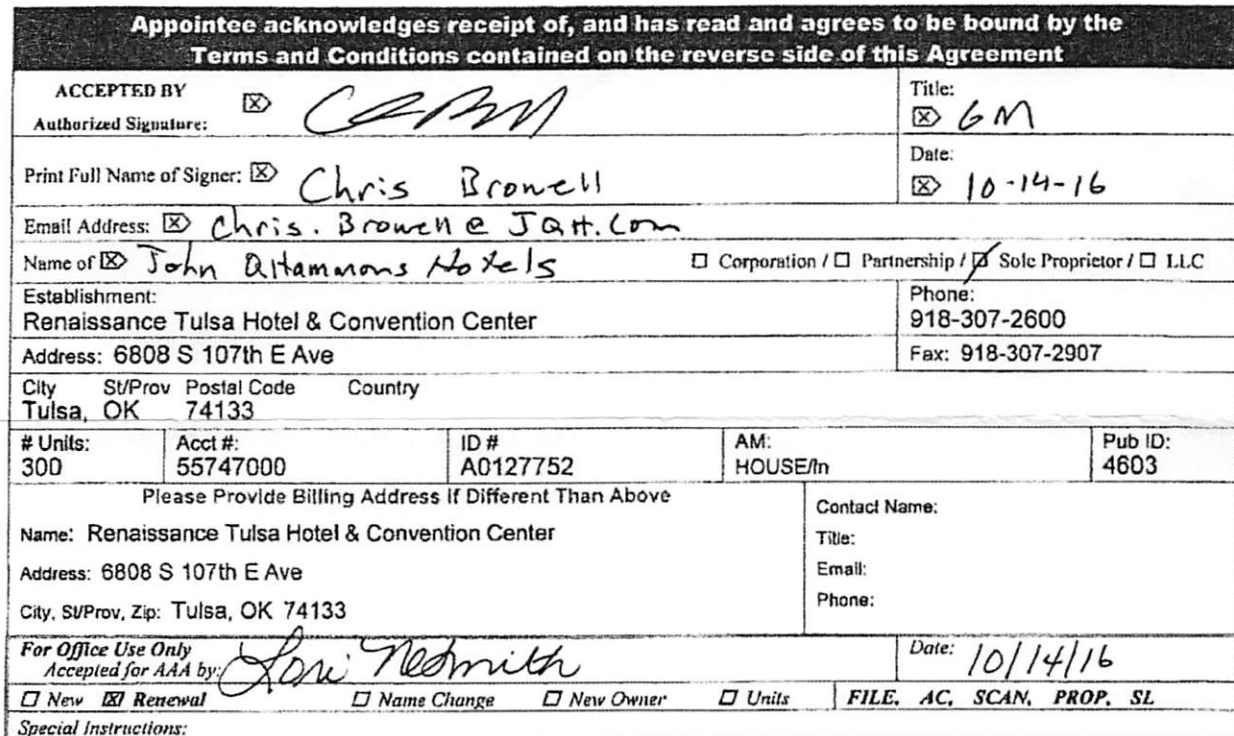 Appointee acknowledges receipt of, and has read and agrees to be bound by the
Terms and Conditions contained on the reverse side of this Agreement
ACCEPTED BY
Authorized Signature:
Title:
GM
Print Full Name of Signer: Chris Browell
Date:
10-14-16
Email Address: Chris.Browell@JQH.Com
Name of John Q Hammons Hotels ☐ Corporation / ☐ Partnership / ☑ Sole Proprietor / ☐ LLC
Establishment:
Renaissance Tulsa Hotel & Convention Center
Phone:
918-307-2600
Address: 6808 S 107th E Ave
Fax: 918-307-2907
City St/Prov Postal Code Country
Tulsa, OK 74133
# Units: Acct #: ID # AM: Pub ID:
300 55747000 A0127752 HOUSE/In 4603
Please Provide Billing Address If Different Than Above
Name: Renaissance Tulsa Hotel & Convention Center
Address: 6808 S 107th E Ave
City, St/Prov, Zip: Tulsa, OK 74133
Contact Name:
Title:
Email:
Phone:
For Office Use Only
Accepted for AAA by: Lori Nesmith
Date: 10/14/16
☐ New ☒ Renewal ☐ Name Change ☐ New Owner ☐ Units FILE, AC, SCAN, PROP, SL
Special Instructions: